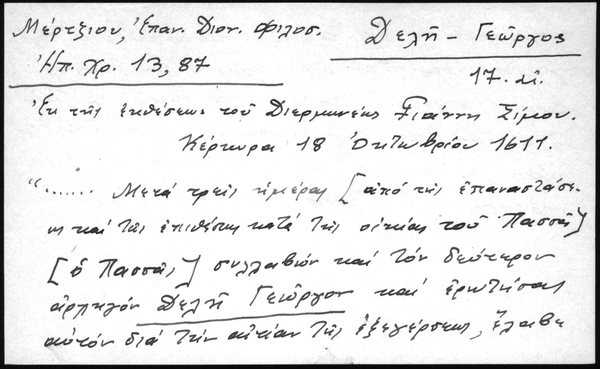 Μέρτζιου, Ἐπαν. Διον. Φιλοσ.
Ἠπ. Χρ. 13, 87
Δελῆ - Γεῶργος
17. αἰ.
Ἐκ τῆς ἐκθέσεως τοῦ Διερμηνέως Γιάννη Σίμου.
Κέρκυρα 18 Ὀκτωβρίου 1611.
"...... Μετά τρεῖς ἡμέρας [ἀπό τῆς ἐπαναστάσε-
ως καί τῆς ἐπιθέσης κατά τῆς οἰκίας τοῦ Πασσᾶ]
[ὁ Πασσᾶς] συλλαβών καί τόν δεύτερον
ἀρχηγόν Δελῆ Γεῶργον καί ἐρωτήσας
αὐτόν διά τήν αἰτίαν τῆς ἐξεγέρσεως, ἔλαβε